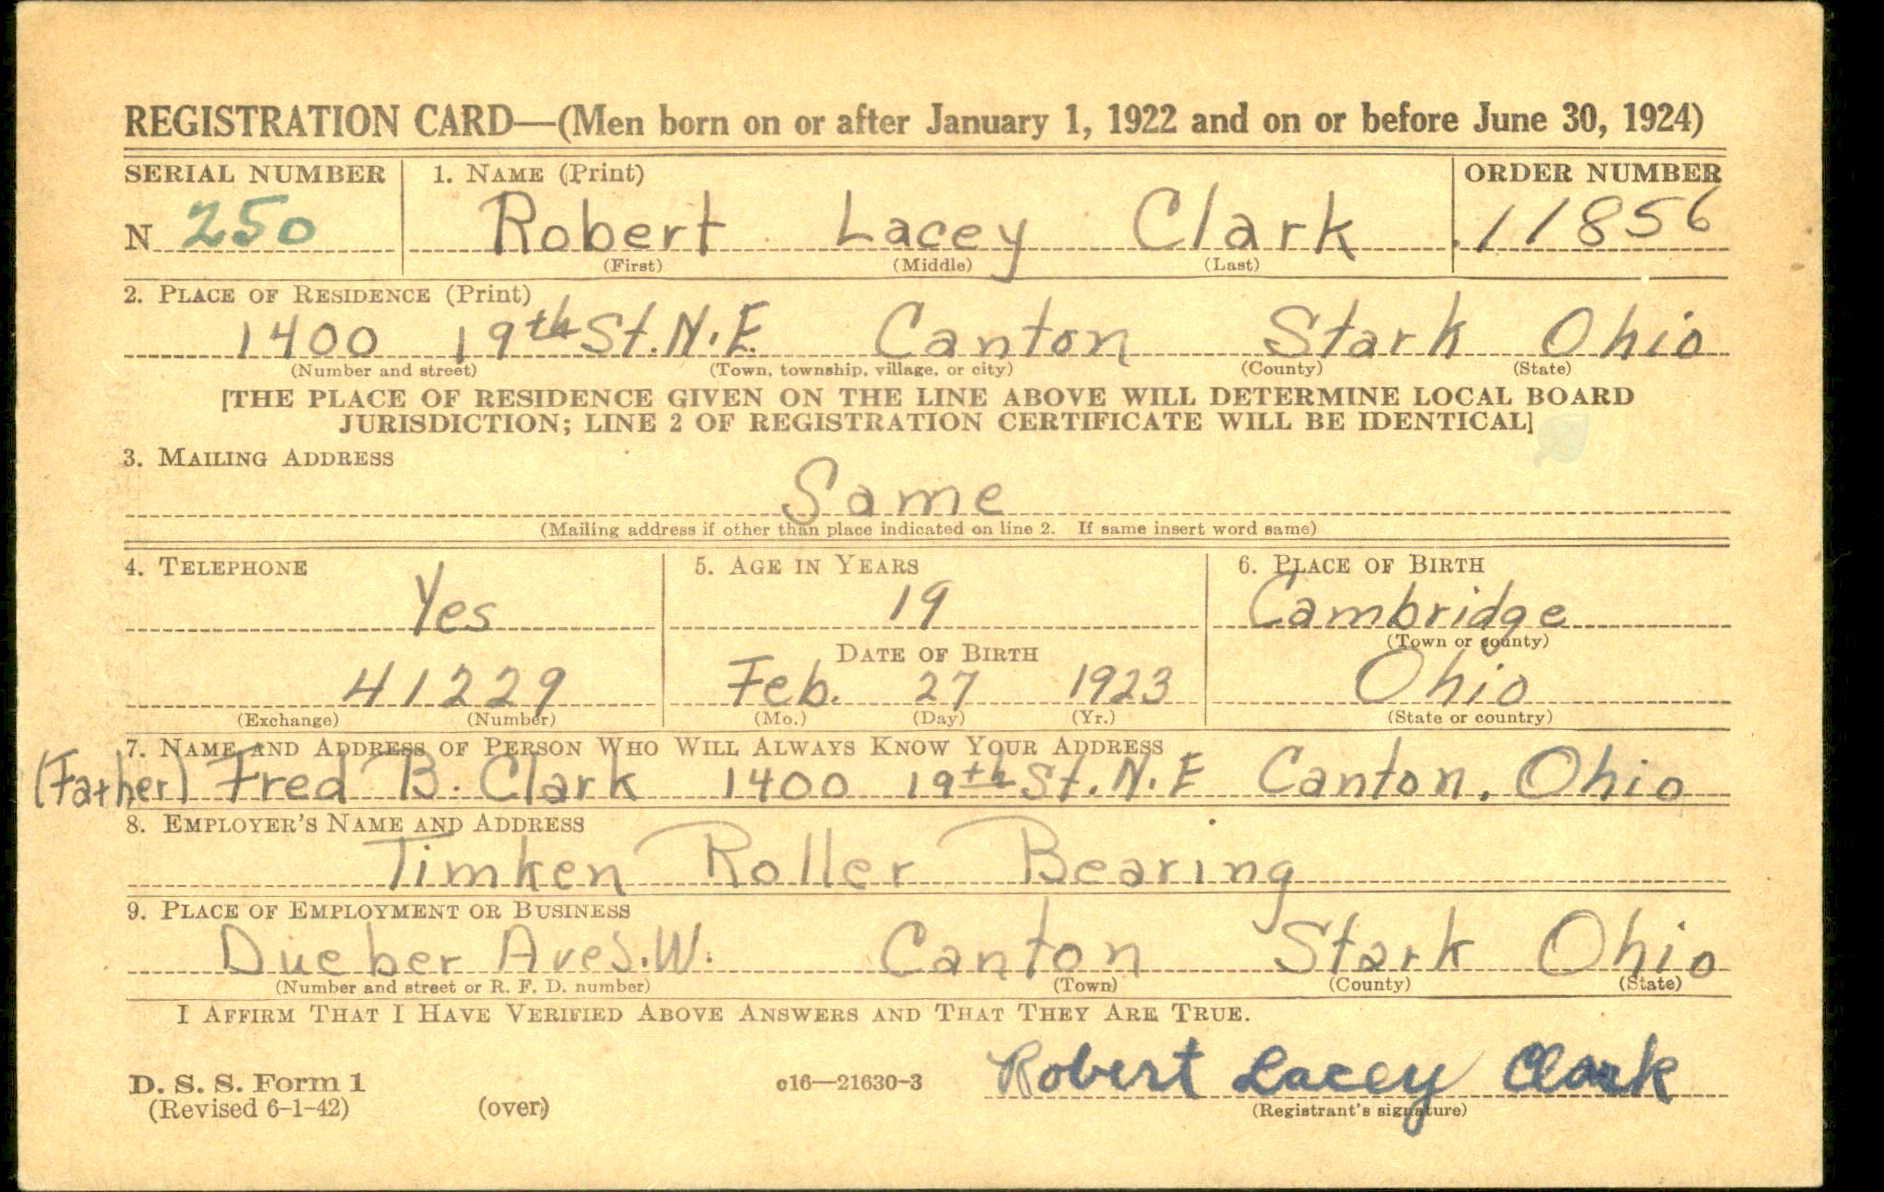 REGISTRATION CARD—(Men born on or after January 1, 1922 and on or before June 30, 1924)
SERIAL NUMBER 1. NAME (Print) ORDER NUMBER
N 250 Robert Lacey Clark 11856
(First) (Middle) (Last)
2. PLACE OF RESIDENCE (Print)
1400 19th St. N.E. Canton Stark Ohio
(Number and street) (Town, township, village, or city) (County) (State)
[THE PLACE OF RESIDENCE GIVEN ON THE LINE ABOVE WILL DETERMINE LOCAL BOARD
JURISDICTION; LINE 2 OF REGISTRATION CERTIFICATE WILL BE IDENTICAL]
3. MAILING ADDRESS
Same
(Mailing address if other than place indicated on line 2. If same insert word same)
4. TELEPHONE 5. AGE IN YEARS 6. PLACE OF BIRTH
Yes 19 Cambridge
(Town or county)
DATE OF BIRTH
41229 Feb. 27 1923 Ohio
(Exchange) (Number) (Mo.) (Day) (Yr.) (State or country)
7. NAME AND ADDRESS OF PERSON WHO WILL ALWAYS KNOW YOUR ADDRESS
(Father) Fred B. Clark 1400 19th St. N.E Canton, Ohio
8. EMPLOYER'S NAME AND ADDRESS
Timken Roller Bearing
9. PLACE OF EMPLOYMENT OR BUSINESS
Dueber Ave S.W. Canton Stark Ohio
(Number and street or R. F. D. number) (Town) (County) (State)
I AFFIRM THAT I HAVE VERIFIED ABOVE ANSWERS AND THAT THEY ARE TRUE.
Robert Lacey Clark
D. S. S. Form 1 c16—21630-3
(Revised 6-1-42) (over) (Registrant's signature)